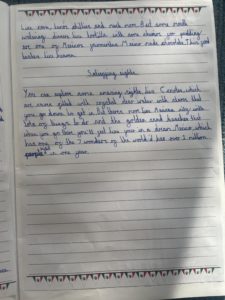 Like corn, beans chillies and much more. But some mouth
watering dinner like tortilla with some churros for pudding
are one of Mexicos Mexico made chocolate. This food
tastes like heaven.
Satisfying sights
You can explore some amazing sights like Cenotes, which
are caves filled with crystal clear water with stairs that
you go down to get in. But there's more like Mexico city with
lots of things to do and the golden sand beaches that
when you go then you'll feel like your in a dream. Mexico which
has one of the 7 wonders of the world has over 2 million
people in one year.